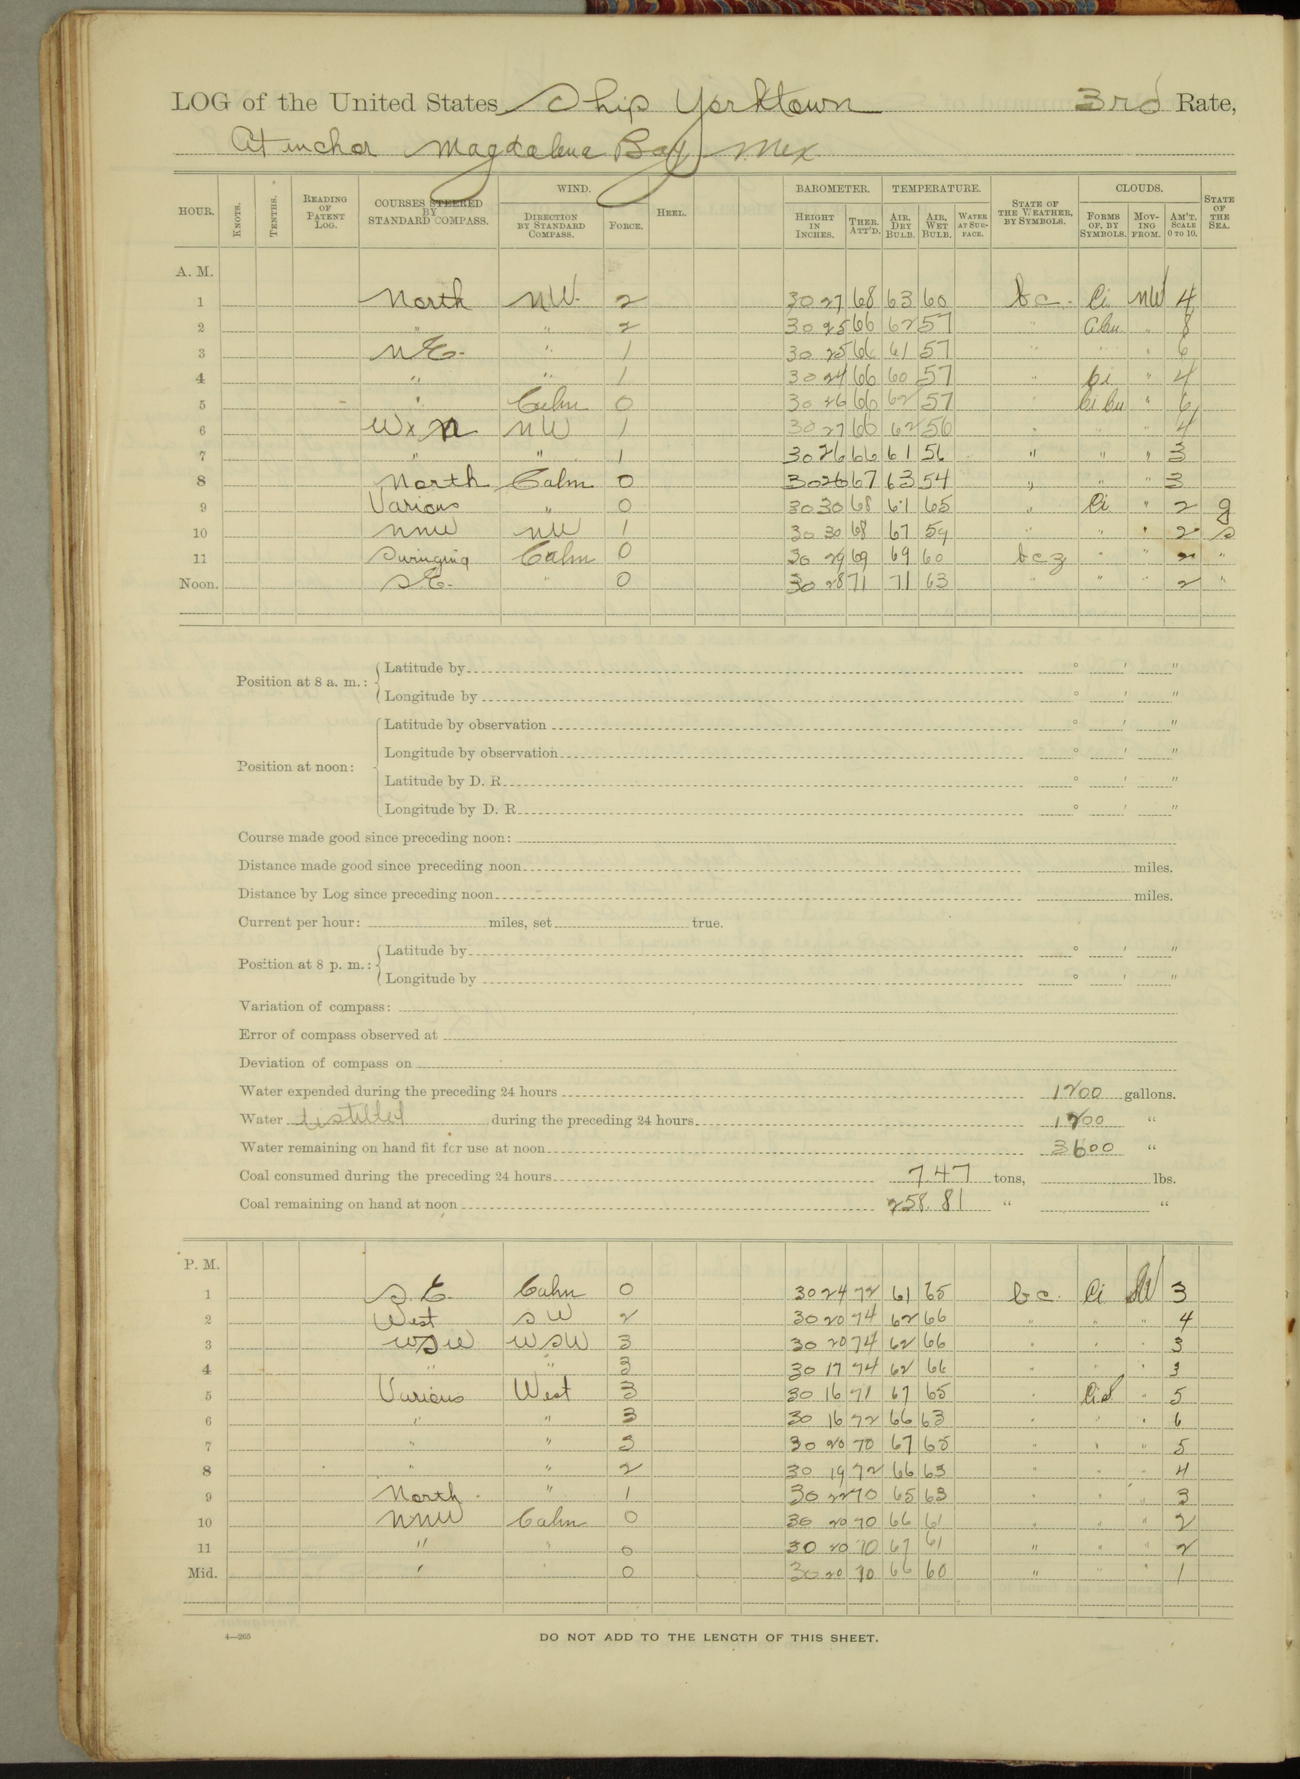 LOG of the United States Ship Yorktown 3rd Rate,
At anchor Magdalena Bay, Mex
HOUR. KNOTS. TENTHS. READING OF PATENT LOG. COURSES STEERED BY STANDARD COMPASS. WIND. DIRECTION BY STANDARD COMPASS. FORCE. HEEL. BAROMETER. HEIGHT IN INCHES. THER. ATT'D. TEMPERATURE. AIR, DRY BULB. AIR, WET BULB. WATER AT SURFACE. STATE OF THE WEATHER, BY SYMBOLS. CLOUDS. FORMS OF, BY SYMBOLS. MOVING FROM. AM'T. SCALE 0 TO 10. STATE OF THE SEA.
A. M.
1 North NW. 2 30 27 68 63 60 bc. Ci NW 4
2 " " 2 30 25 66 62 57 " " 8
3 NE. " 1 30 25 66 61 57 " " " 6
4 " " 1 30 24 66 60 57 " Ci " 4
5 " Calm 0 30 26 66 62 57 " Ci Cu " 6
6 W x N NW 1 30 27 66 62 56 " " " 4
7 " " 1 30 26 66 61 56 " " " 3
8 North Calm 0 30 26 67 63 54 " " " 3
9 Various " 0 30 30 68 61 65 " Ci " 2 g
10 NNW NW 1 30 30 68 67 59 " " " 2 s
11 Swinging Calm 0 30 29 69 69 60 bcz " " 2 "
Noon. SE. " 0 30 28 71 71 63 " " " 2 "
Position at 8 a. m.: Latitude by ° ' "
Longitude by ° ' "
Position at noon: Latitude by observation ° ' "
Longitude by observation ° ' "
Latitude by D. R. ° ' "
Longitude by D. R. ° ' "
Course made good since preceding noon:
Distance made good since preceding noon miles.
Distance by Log since preceding noon miles.
Current per hour: miles, set true.
Position at 8 p. m.: Latitude by ° ' "
Longitude by ° ' "
Variation of compass:
Error of compass observed at
Deviation of compass on
Water expended during the preceding 24 hours 1200 gallons.
Water distilled during the preceding 24 hours 1200 "
Water remaining on hand fit for use at noon 3600 "
Coal consumed during the preceding 24 hours 7.47 tons, lbs.
Coal remaining on hand at noon 258.81 " "
P. M.
1 S.E. Calm 0 30 24 72 61 65 bc. Ci SW 3
2 West SW 2 30 20 74 62 66 " " " 4
3 WSW WSW 3 30 20 74 62 66 " " " 3
4 " " 3 30 17 74 62 66 " " " 3
5 Various West 3 30 16 71 67 65 " CiS " 5
6 " " 3 30 16 72 66 63 " " " 6
7 " " 3 30 20 70 67 65 " " " 5
8 " " 2 30 19 72 66 63 " " " 4
9 North " 1 30 22 70 65 63 " " " 3
10 NNW Calm 0 30 20 70 66 61 " " " 2
11 " " 0 30 20 70 67 61 " " " 2
Mid. " " 0 30 20 70 66 60 " " " 1
4—265
DO NOT ADD TO THE LENGTH OF THIS SHEET.